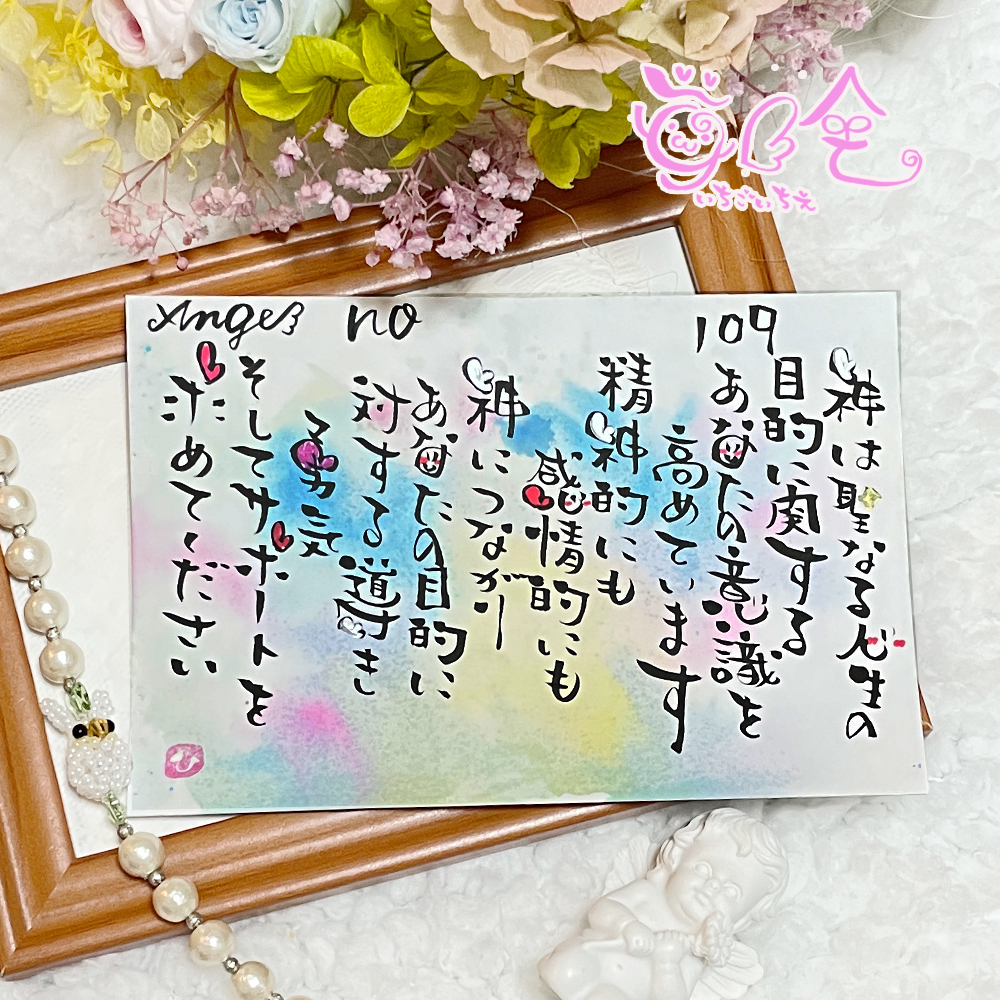 いちごいちえ
Angel no 109
神は聖なる人生の
目的に関する
あなたの意識を
高めています
精神的にも
感情的にも
神につながり
あなたの目的に
対する導き
勇気
そしてサポートを
求めてください